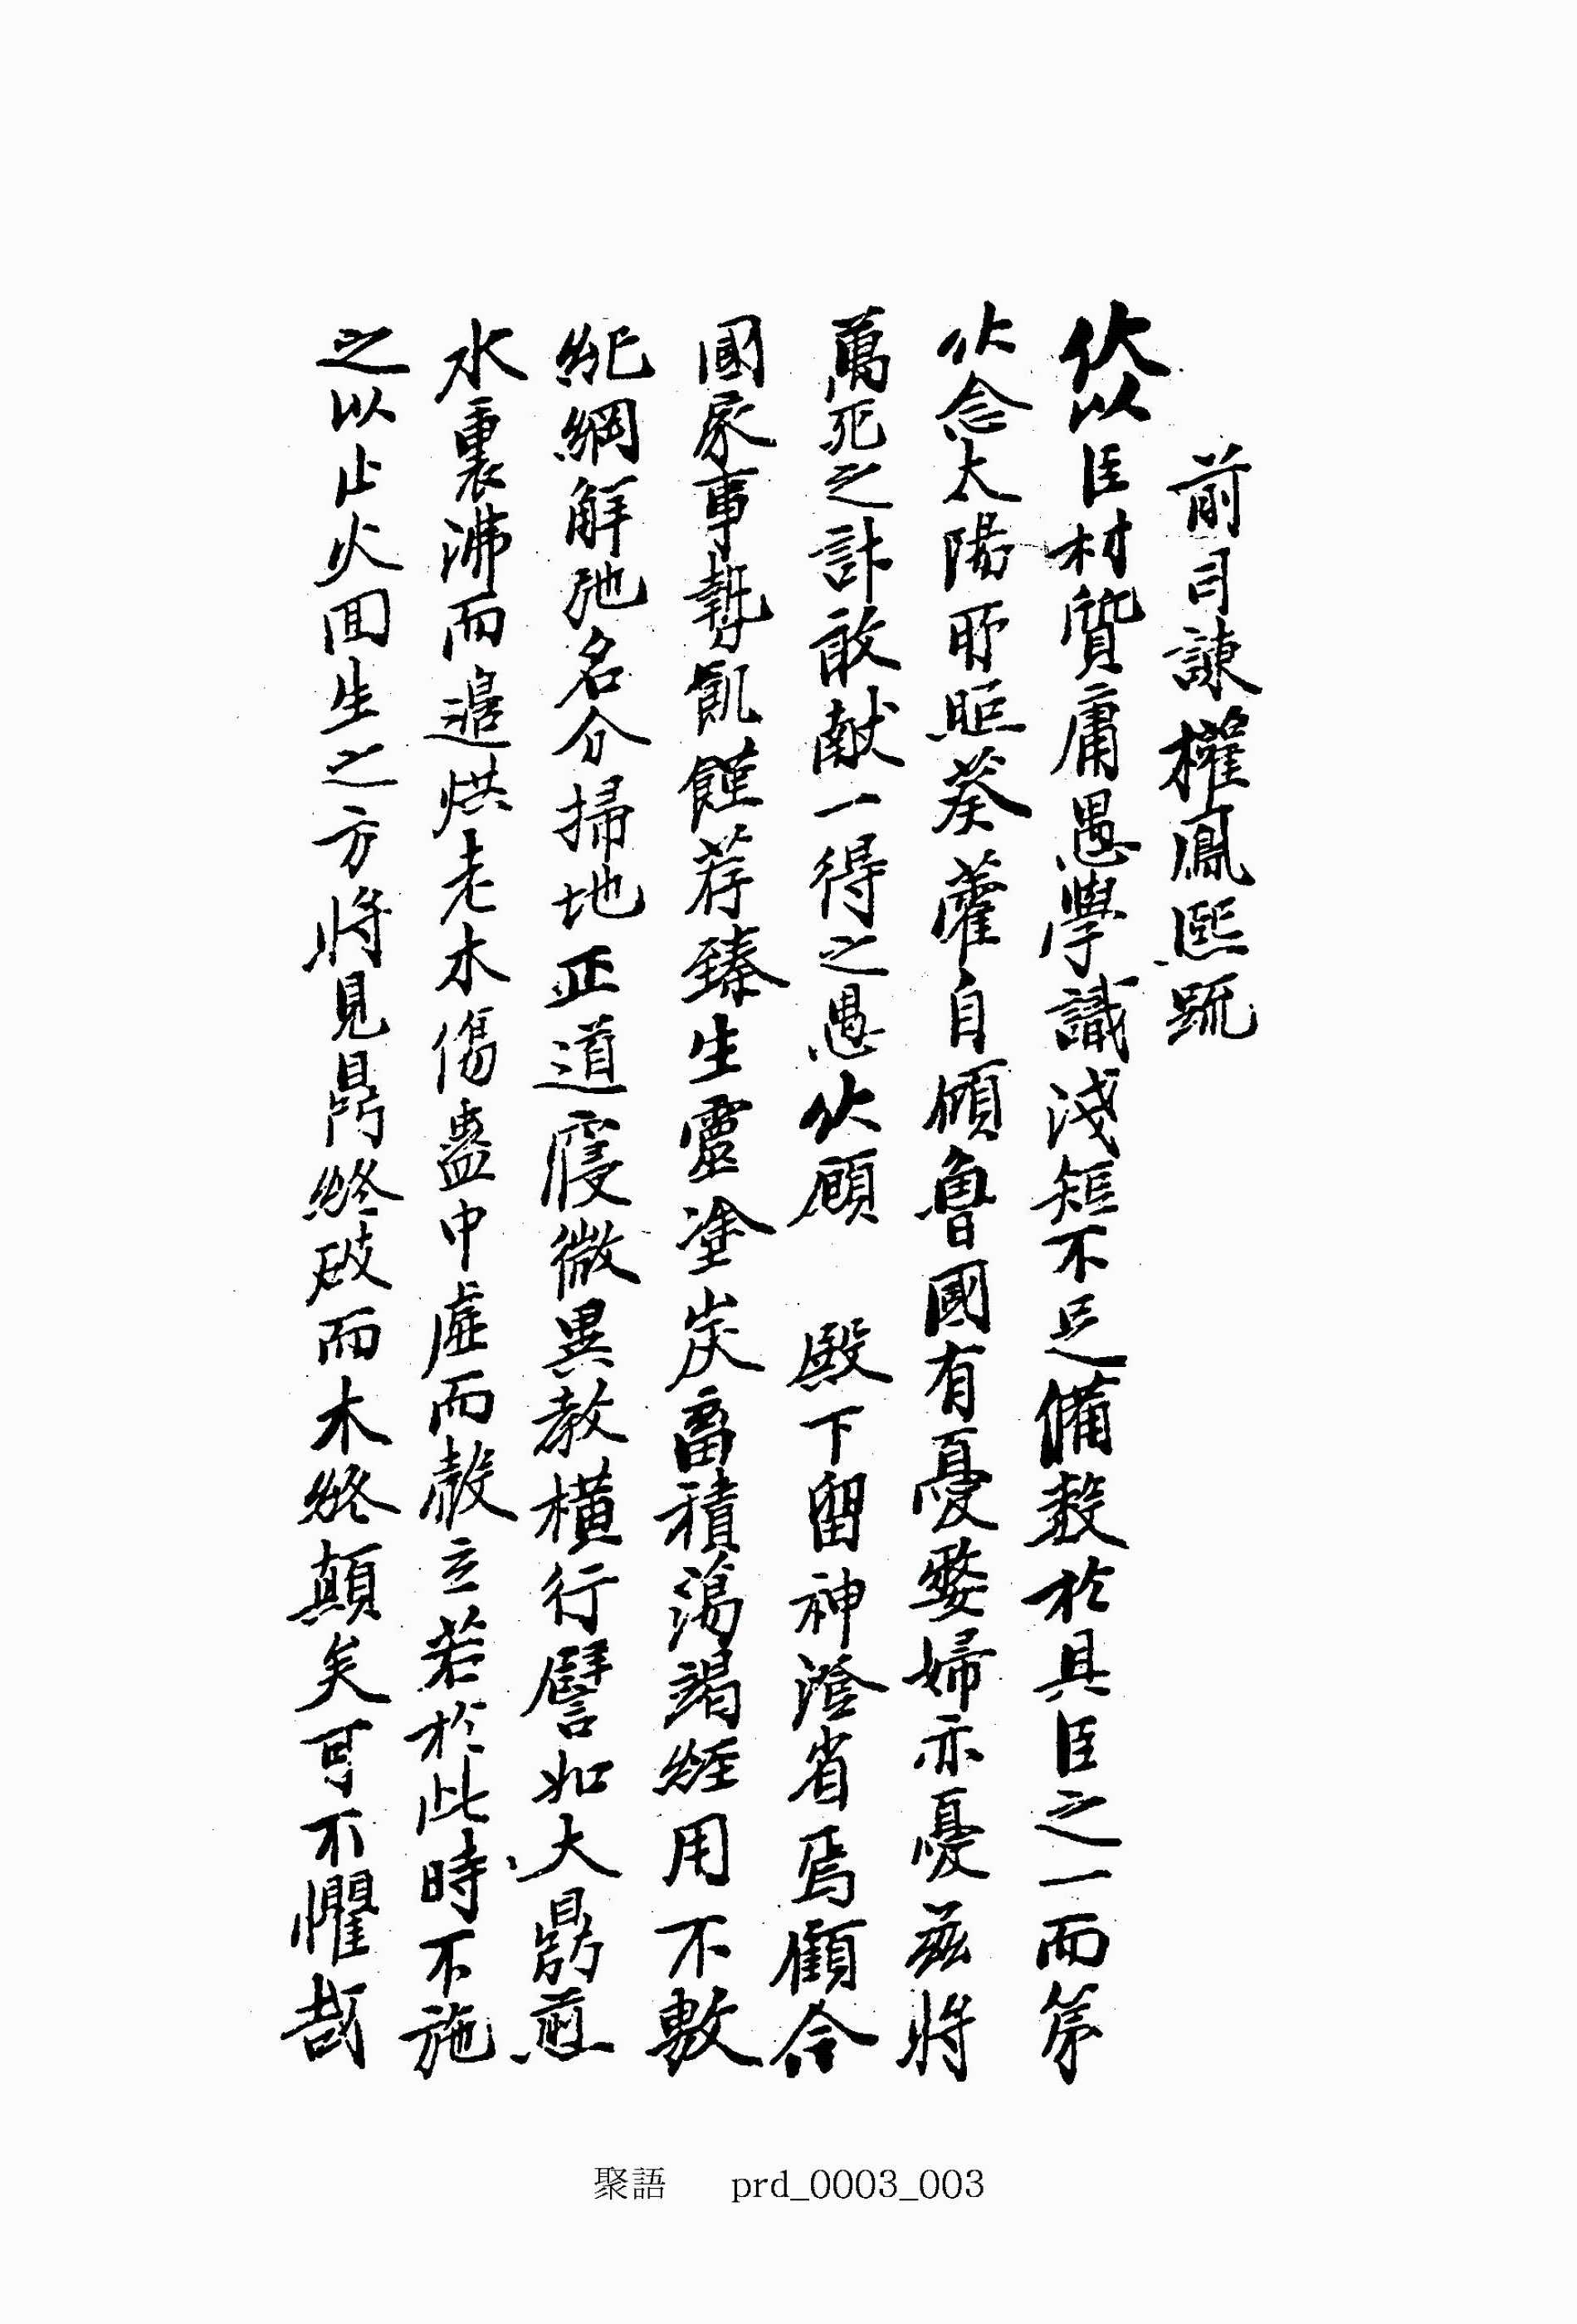 前司諫權鳳熙疏
伏以臣材質庸愚學識淺短不足備數於具臣之一而第
伏念太陽所照葵藿自傾魯國有憂嫠婦亦憂玆將
萬死之計敢献一得之愚伏願 殿下留神澄省焉顧今
國家事勢飢饉荐臻生靈塗炭畜積蕩竭經用不敷
紀綱解弛名分掃地正道寢微異教橫行譬如大鼎煎
水裏沸而邊烘老木傷蠱中虛而殼立若於此時不施
之以止火回生之方將見鼎終破而木終顛矣可不懼哉
聚語 prd_0003_003